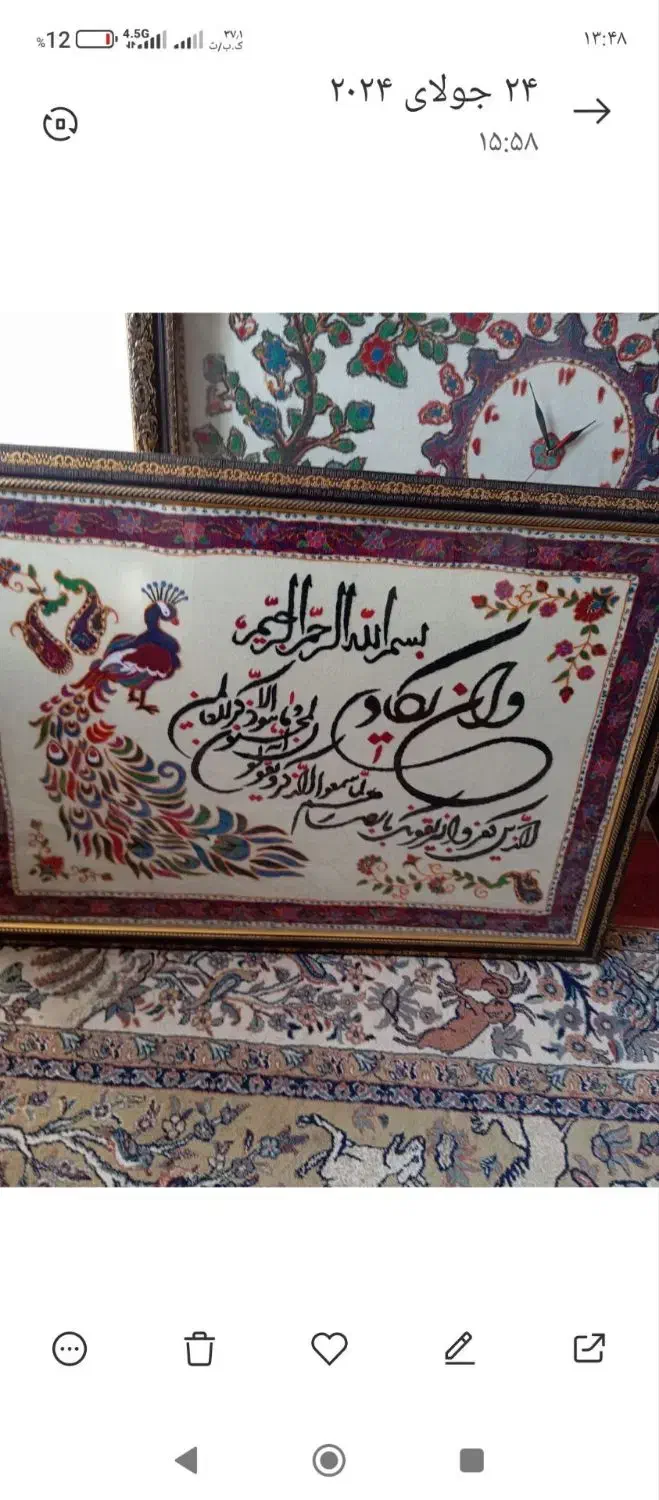 ۱۳:۴۸
۲۷٫۱
ک.ب/ث
4.5G
%12
۲۴ جولای ۲۰۲۴
۱۵:۵۸
بسم الله الرحمن الرحیم
وان یکاد
الذین کفروا لیزلقونک بابصارهم
لما سمعوا الذکر و یقولون
انه لمجنون
و ما هو الا ذکر للعالمین